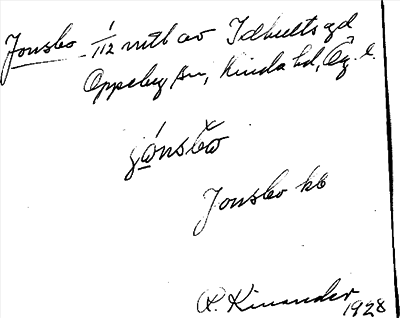 Jonsbo 1/12 mtl av Idhults gd
Oppeby sn, Kinda hd, Ög. l.
Jonsbo
R. Kinander
1928